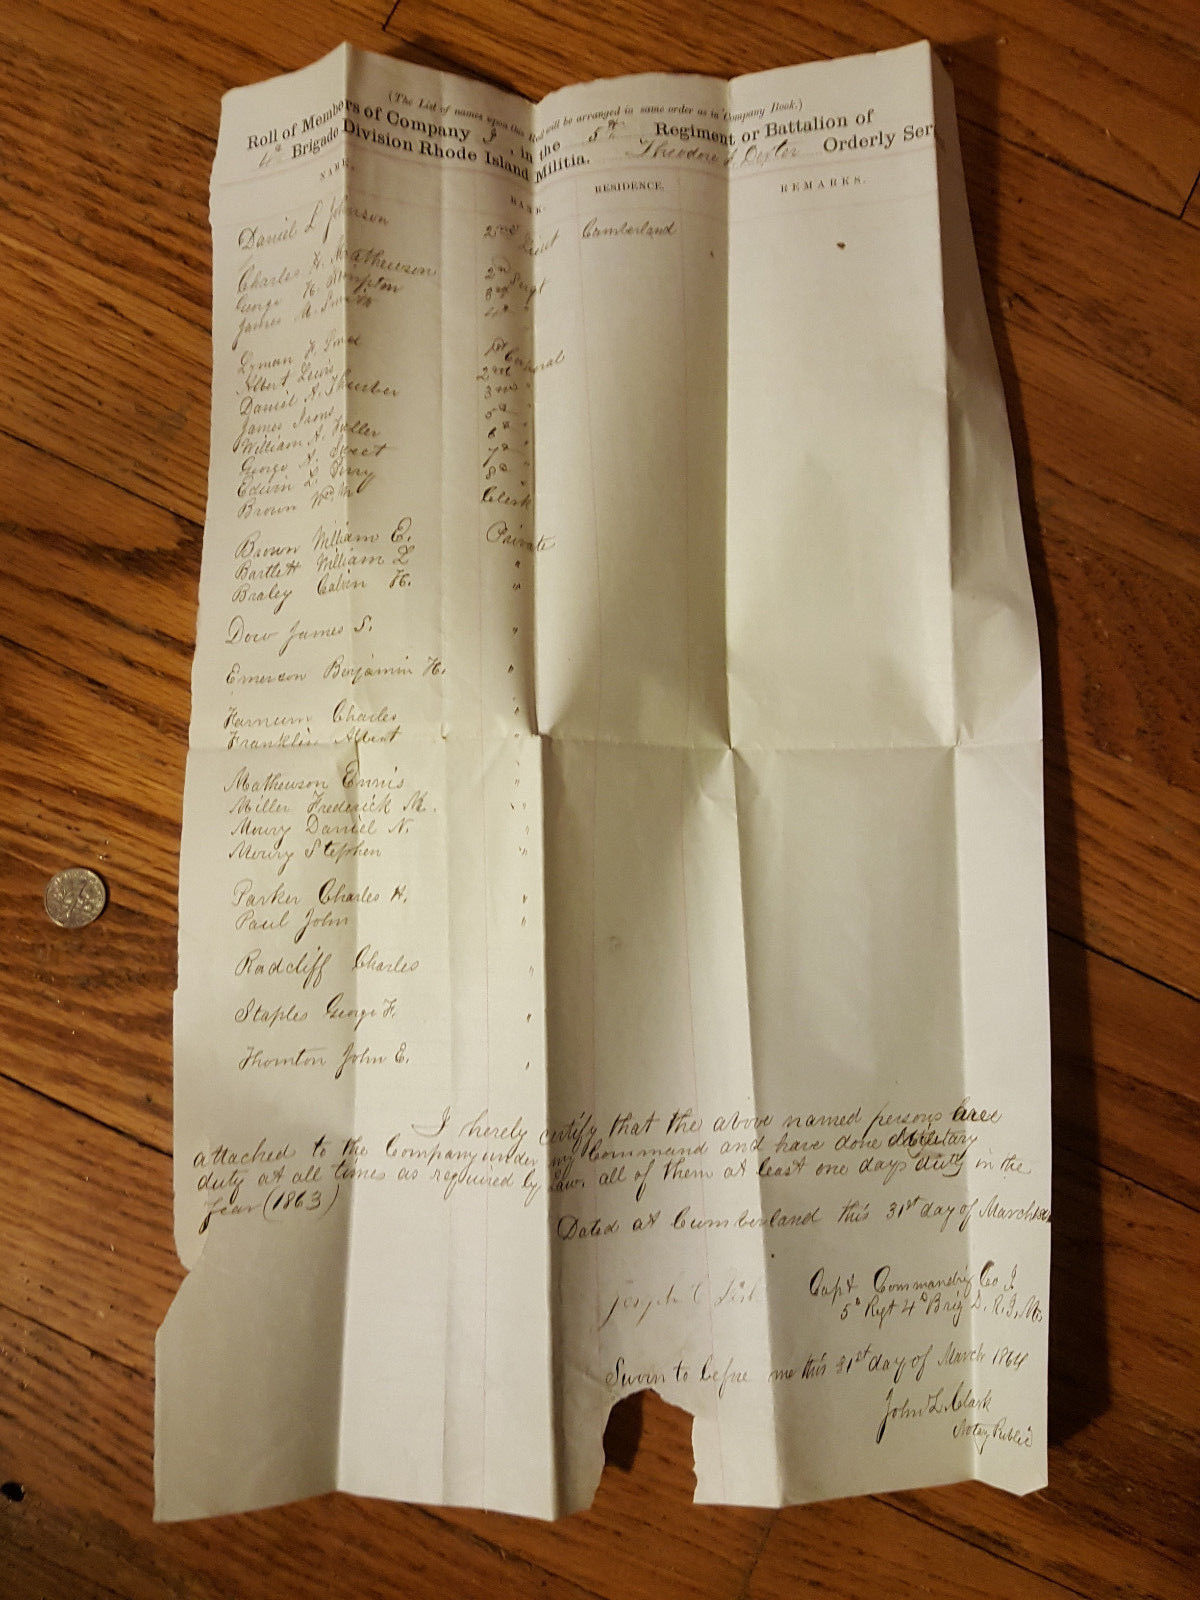 (The List of names upon this Roll will be arranged in same order as in Company Book.)
Roll of Members of Company I, in the 5th Regiment or Battalion of
4th Brigade Division Rhode Island Militia. Theodore A Dexter Orderly Ser
NAME. RANK. RESIDENCE. REMARKS.
Daniel L Johnson 2nd Lieut Cumberland
Charles H. Mathewson 2nd Sergt
George H. 3rd "
James M. Smith 4th "
Lyman H. 1st Corporal
Albert Lewis 2nd "
Daniel A. Thurber 3rd "
James Irons 5th "
William A. Fuller 6th "
George A. Sweet 7th "
Edwin L. Perry 8th "
Brown Wm. M Clerk
Brown William E. Private
Bartlett William L "
Braley Calvin H. "
Dow James S. "
Emerson Benjamin H. "
Farnum Charles "
Franklin Albert "
Mathewson Ennis "
Miller Frederick M. "
Mowry Daniel N. "
Mowry Stephen "
Parker Charles H. "
Paul John "
Radcliff Charles "
Staples George F. "
Thornton John E. "
I hereby certify that the above named persons are
attached to the Company under my Command and have done Military
duty at all times as required by Law. all of them at least one days duty in the
Year (1863)
Dated at Cumberland this 31st day of March
Joseph C Capt Commanding Co I
5th Regt 4th Brig D. R. I. M.
Sworn to before me this 31st day of March 1864
John L. Clark
Notary Public